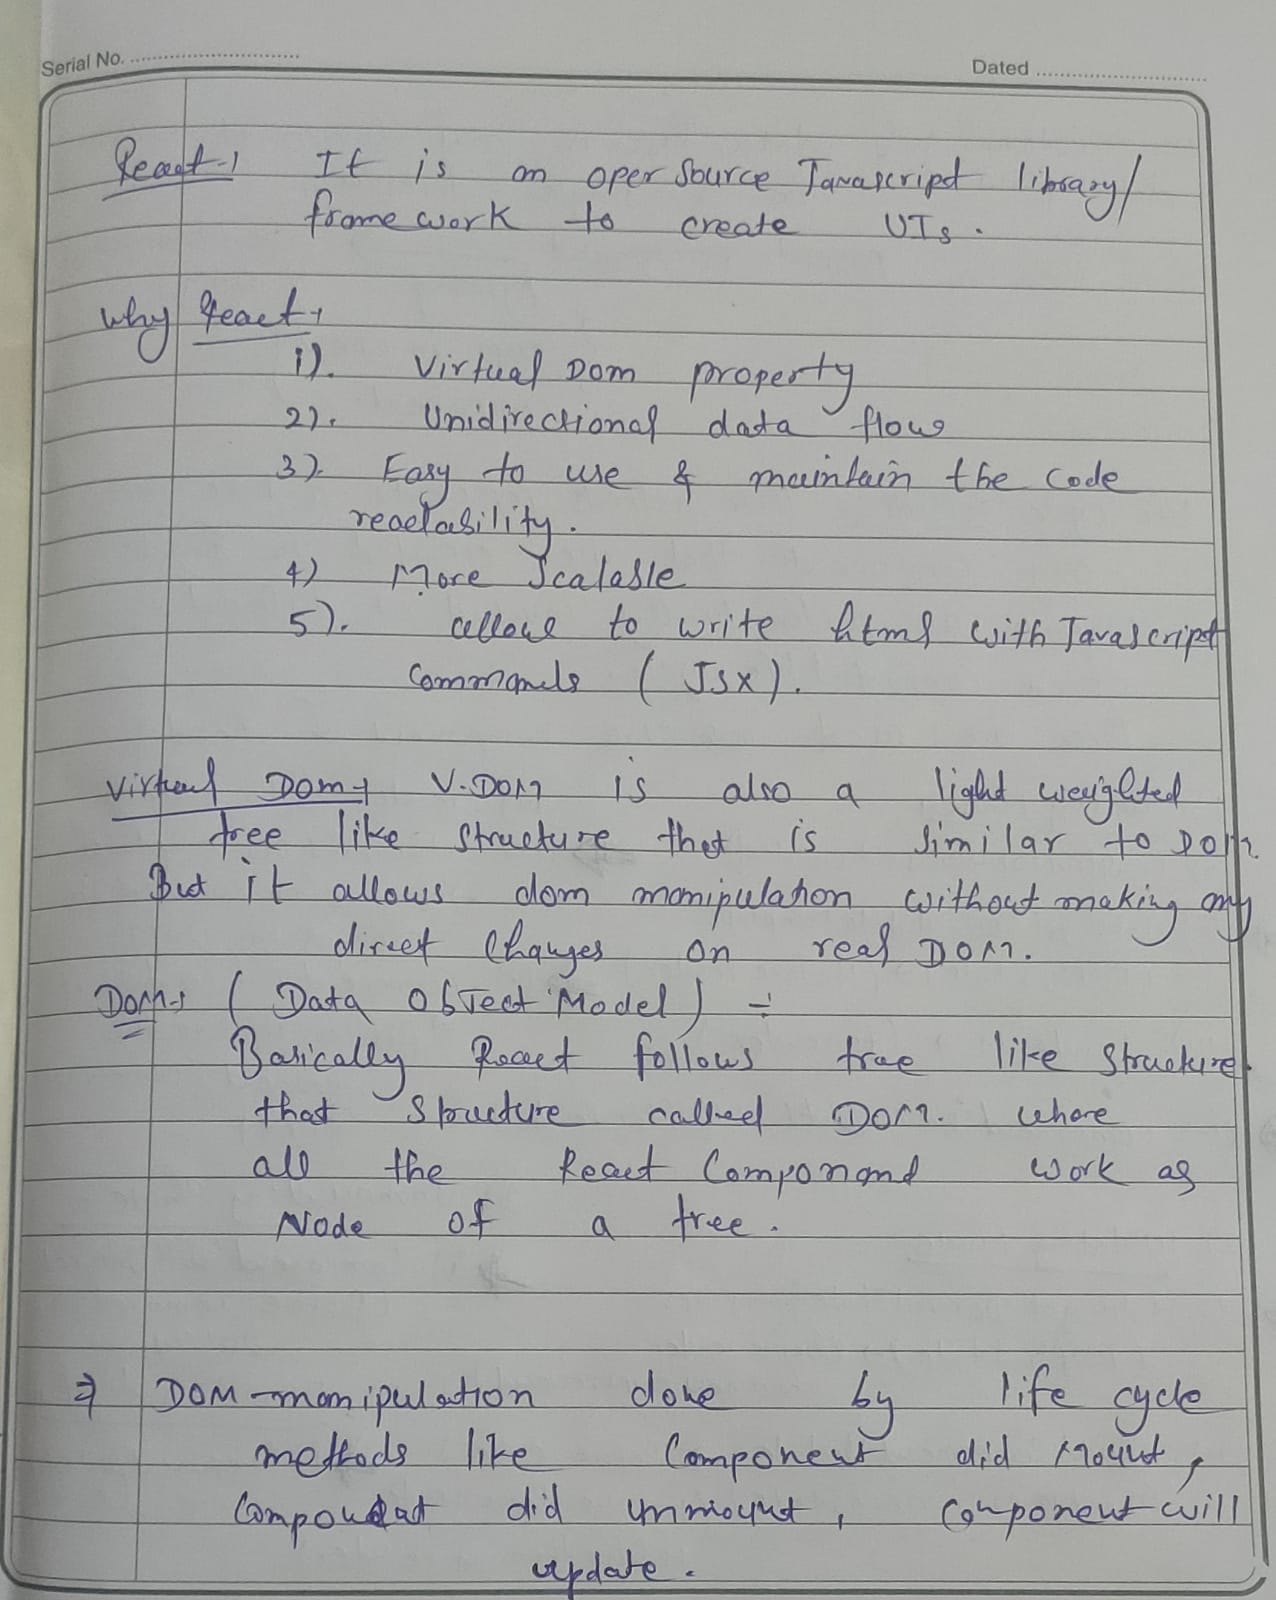 Serial No.
Dated
React - It is an open source Javascript library/
frame work to create UIs.
Why React -
1). Virtual Dom property
2). Unidirectional data flow
3). Easy to use & maintain the code
readability.
4) More Scalable
5). allow to write html with Javascript
Commands (Jsx).
Virtual Dom - V.DOM is also a light weighted
tree like structure that is similar to DOM
But it allows dom manipulation without making any
direct changes on real DOM.
Dom - (Data Object Model) ÷
Basically React follows tree like structure
that structure called DOM. where
all the React Componand work as
Node of a tree.
⇒ DOM manipulation done by life cycle
methods like Component did Mount,
Component did unmount, component will
update.